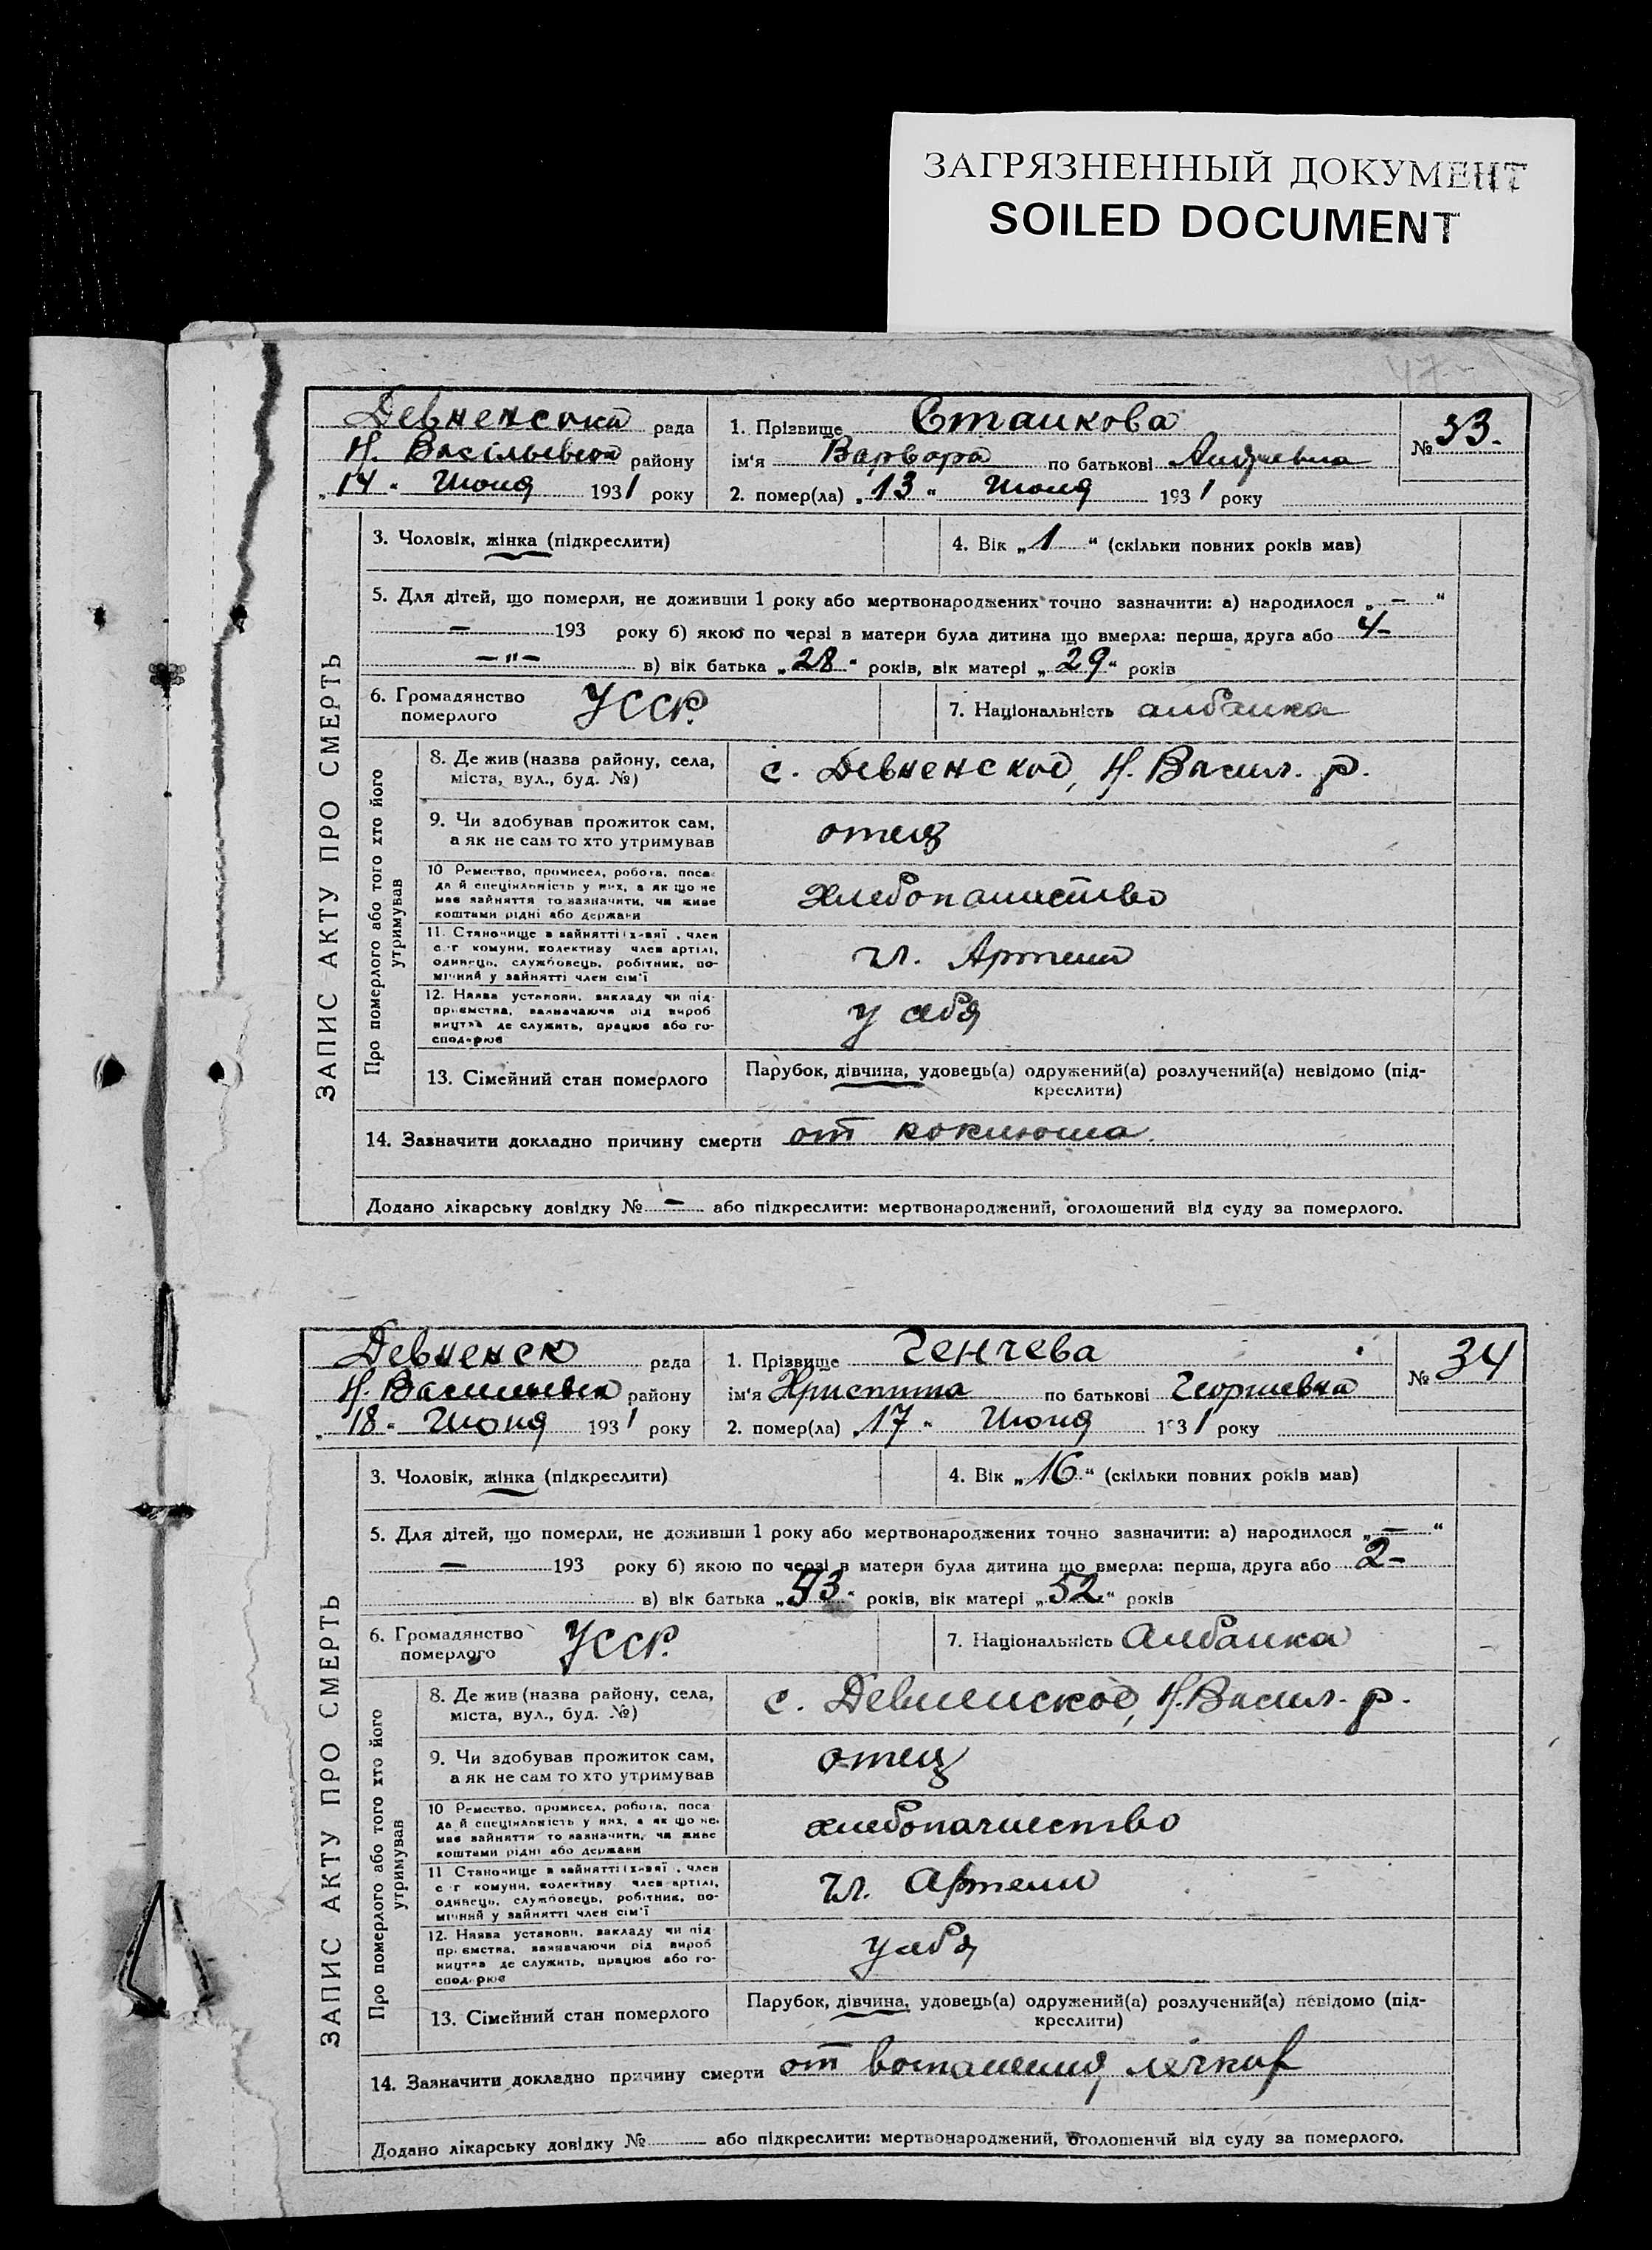 ЗАГРЯЗНЕННЫЙ ДОКУМЕНТ
SOILED DOCUMENT
47
Девненська рада
Н. Васільевськ району
„14" Июня 1931 року
1. Прізвище Станкова
ім'я Варвара по батькові Андреевна
2. помер(ла) „13" Июня 1931 року
№ 33.
ЗАПИС АКТУ ПРО СМЕРТЬ
3. Чоловік, жінка (підкреслити)
4. Вік „1" (скільки повних років мав)
5. Для дітей, що померли, не доживши 1 року або мертвонароджених точно зазначити: а) народилося „–"
– 193 року б) якою по черзі в матери була дитина що вмерла: перша, друга або 4-
–"– в) вік батька „28" років, вік матері „29" років
6. Громадянство
померлого УССР.
7. Національність албанка
Про померлого або того хто його
утримував
8. Де жив (назва району, села,
міста, вул., буд. №)
с. Девненское, Н. Васил. р.
9. Чи здобував прожиток сам,
а як не сам то хто утримував
отец
10 Ремество, промисел, робота, поса-
да й спеціяльність у них, а як що не
має зайняття то зазначити, чи живе
коштами рідні або держави
хлебопашество
11. Становище в зайнятті (хазяї, член
с-г комуни, колективу член артілі,
одинець, службовець, робітник, по-
мічний у зайнятті член сім'ї
чл. Артели
12. Назва установи, закладу чи під-
приємства, зазначаючи рід вироб
ництва де служить, працює або го-
сподарює
у себя
13. Сімейний стан померлого
Парубок, дівчина, удовець(а) одружений(а) розлучений(а) невідомо (під-
креслити)
14. Зазначити докладно причину смерти от коклюша
Додано лікарську довідку № – або підкреслити: мертвонароджений, оголошений від суду за померлого.
Девненск рада
Н. Васильевск району
„18" Июня 1931 року
1. Прізвище Генчева
ім'я Христина по батькові Георгиевна
2. помер(ла) „17" Июня 1931 року
№ 34
ЗАПИС АКТУ ПРО СМЕРТЬ
3. Чоловік, жінка (підкреслити)
4. Вік „16" (скільки повних років мав)
5. Для дітей, що померли, не доживши 1 року або мертвонароджених точно зазначити: а) народилося „–"
– 193 року б) якою по черзі в матери була дитина що вмерла: перша, друга або 2-
в) вік батька „53" років, вік матері „52" років
6. Громадянство
померлого УССР.
7. Національність Албанка
Про померлого або того хто його
утримував
8. Де жив (назва району, села,
міста, вул., буд. №)
с. Девненское, Н. Васил. р.
9. Чи здобував прожиток сам,
а як не сам то хто утримував
отец
10 Ремество, промисел, робота, поса-
да й спеціяльність у них, а як що не
має зайняття то зазначити, чи живе
коштами рідні або держави
хлебопашество
11 Становище в зайнятті (хазяї, член
с-г комуни, колективу член артілі,
одинець, службовець, робітник, по-
мічний у зайнятті член сім'ї
чл. Артели
12. Назва установи, закладу чи під
приємства, зазначаючи рід вироб
ництва де служить, працює або го-
сподарює
у себя
13. Сімейний стан померлого
Парубок, дівчина, удовець(а) одружений(а) розлучений(а) невідомо (під-
креслити)
14. Зазначити докладно причину смерти от воспаления легких
Додано лікарську довідку № або підкреслити: мертвонароджений, оголошений від суду за померлого.